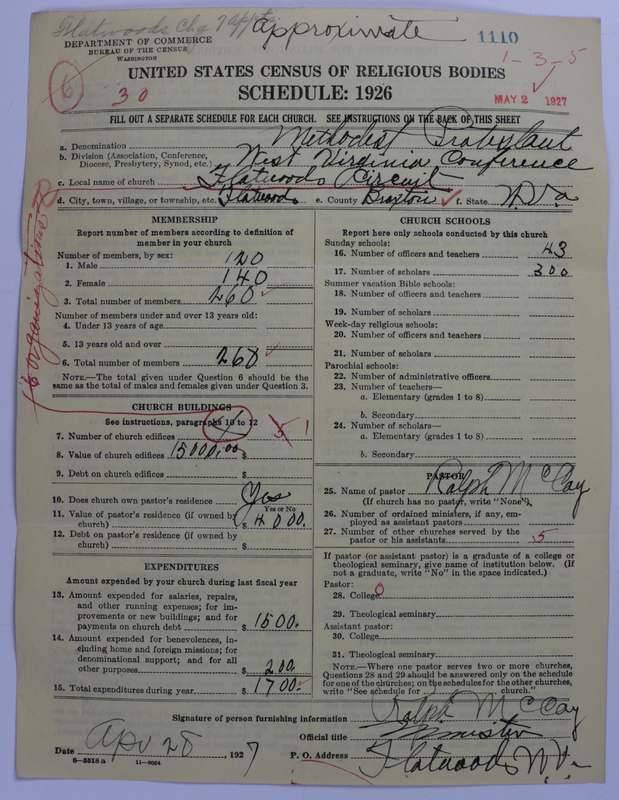 Flatwoods Chg 7 appts
approximate
1110
DEPARTMENT OF COMMERCE
BUREAU OF THE CENSUS
WASHINGTON
1-3-5
UNITED STATES CENSUS OF RELIGIOUS BODIES
6
30
SCHEDULE: 1926
MAY 2 1927
FILL OUT A SEPARATE SCHEDULE FOR EACH CHURCH. SEE INSTRUCTIONS ON THE BACK OF THIS SHEET
a. Denomination Methodist
b. Division (Association, Conference, Diocese, Presbytery, Synod, etc.) West Virginia Conference
c. Local name of church Flatwoods Circuit
d. City, town, village, or township, etc. Flatwoods e. County Braxton f. State W.Va
(6 organizations)
MEMBERSHIP
Report number of members according to definition of
member in your church
Number of members, by sex:
1. Male 120
2. Female 140
3. Total number of members 260
Number of members under and over 13 years old:
4. Under 13 years of age
5. 13 years old and over
6. Total number of members 260
NOTE.—The total given under Question 6 should be the
same as the total of males and females given under Question 3.
CHURCH BUILDINGS
See instructions, paragraphs 10 to 12
7. Number of church edifices 5 1
8. Value of church edifices $ 15000.00
9. Debt on church edifices $
10. Does church own pastor's residence Yes
Yes or No
11. Value of pastor's residence (if owned by
church) $ 4000.
12. Debt on pastor's residence (if owned by
church) $
EXPENDITURES
Amount expended by your church during last fiscal year
13. Amount expended for salaries, repairs,
and other running expenses; for im-
provements or new buildings; and for
payments on church debt $ 1500.
14. Amount expended for benevolences, in-
cluding home and foreign missions; for
denominational support; and for all
other purposes $ 200.
15. Total expenditures during year $ 1700.
CHURCH SCHOOLS
Report here only schools conducted by this church
Sunday schools:
16. Number of officers and teachers 43
17. Number of scholars 300
Summer vacation Bible schools:
18. Number of officers and teachers
19. Number of scholars
Week-day religious schools:
20. Number of officers and teachers
21. Number of scholars
Parochial schools:
22. Number of administrative officers
23. Number of teachers—
a. Elementary (grades 1 to 8)
b. Secondary
24. Number of scholars—
a. Elementary (grades 1 to 8)
b. Secondary
PASTOR
25. Name of pastor Ralph McCay
(If church has no pastor, write "None")
26. Number of ordained ministers, if any, em-
ployed as assistant pastors
27. Number of other churches served by the
pastor or his assistants 5
If pastor (or assistant pastor) is a graduate of a college or
theological seminary, give name of institution below. (If
not a graduate, write "No" in the space indicated.)
Pastor:
28. College 0
29. Theological seminary
Assistant pastor:
30. College
31. Theological seminary
NOTE.—Where one pastor serves two or more churches,
Questions 28 and 29 should be answered only on the schedule
for one of the churches; on the schedules for the other churches,
write "See schedule for church."
Signature of person furnishing information Ralph McCay
Official title Minister
Date Apr 28, 1927 P. O. Address Flatwoods W.Va.
6—5518 a 11—9064